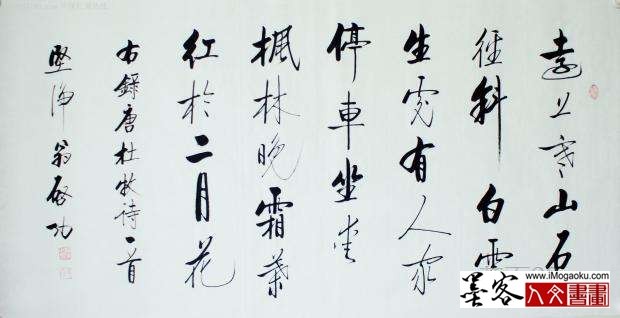 遠上寒山石
徑斜白雲
生處有人家
停車坐愛
楓林晚霜葉
紅於二月花
右錄唐杜牧詩一首
堅淨翁啟功
www.iMogaoku.com
墨客人文書畫